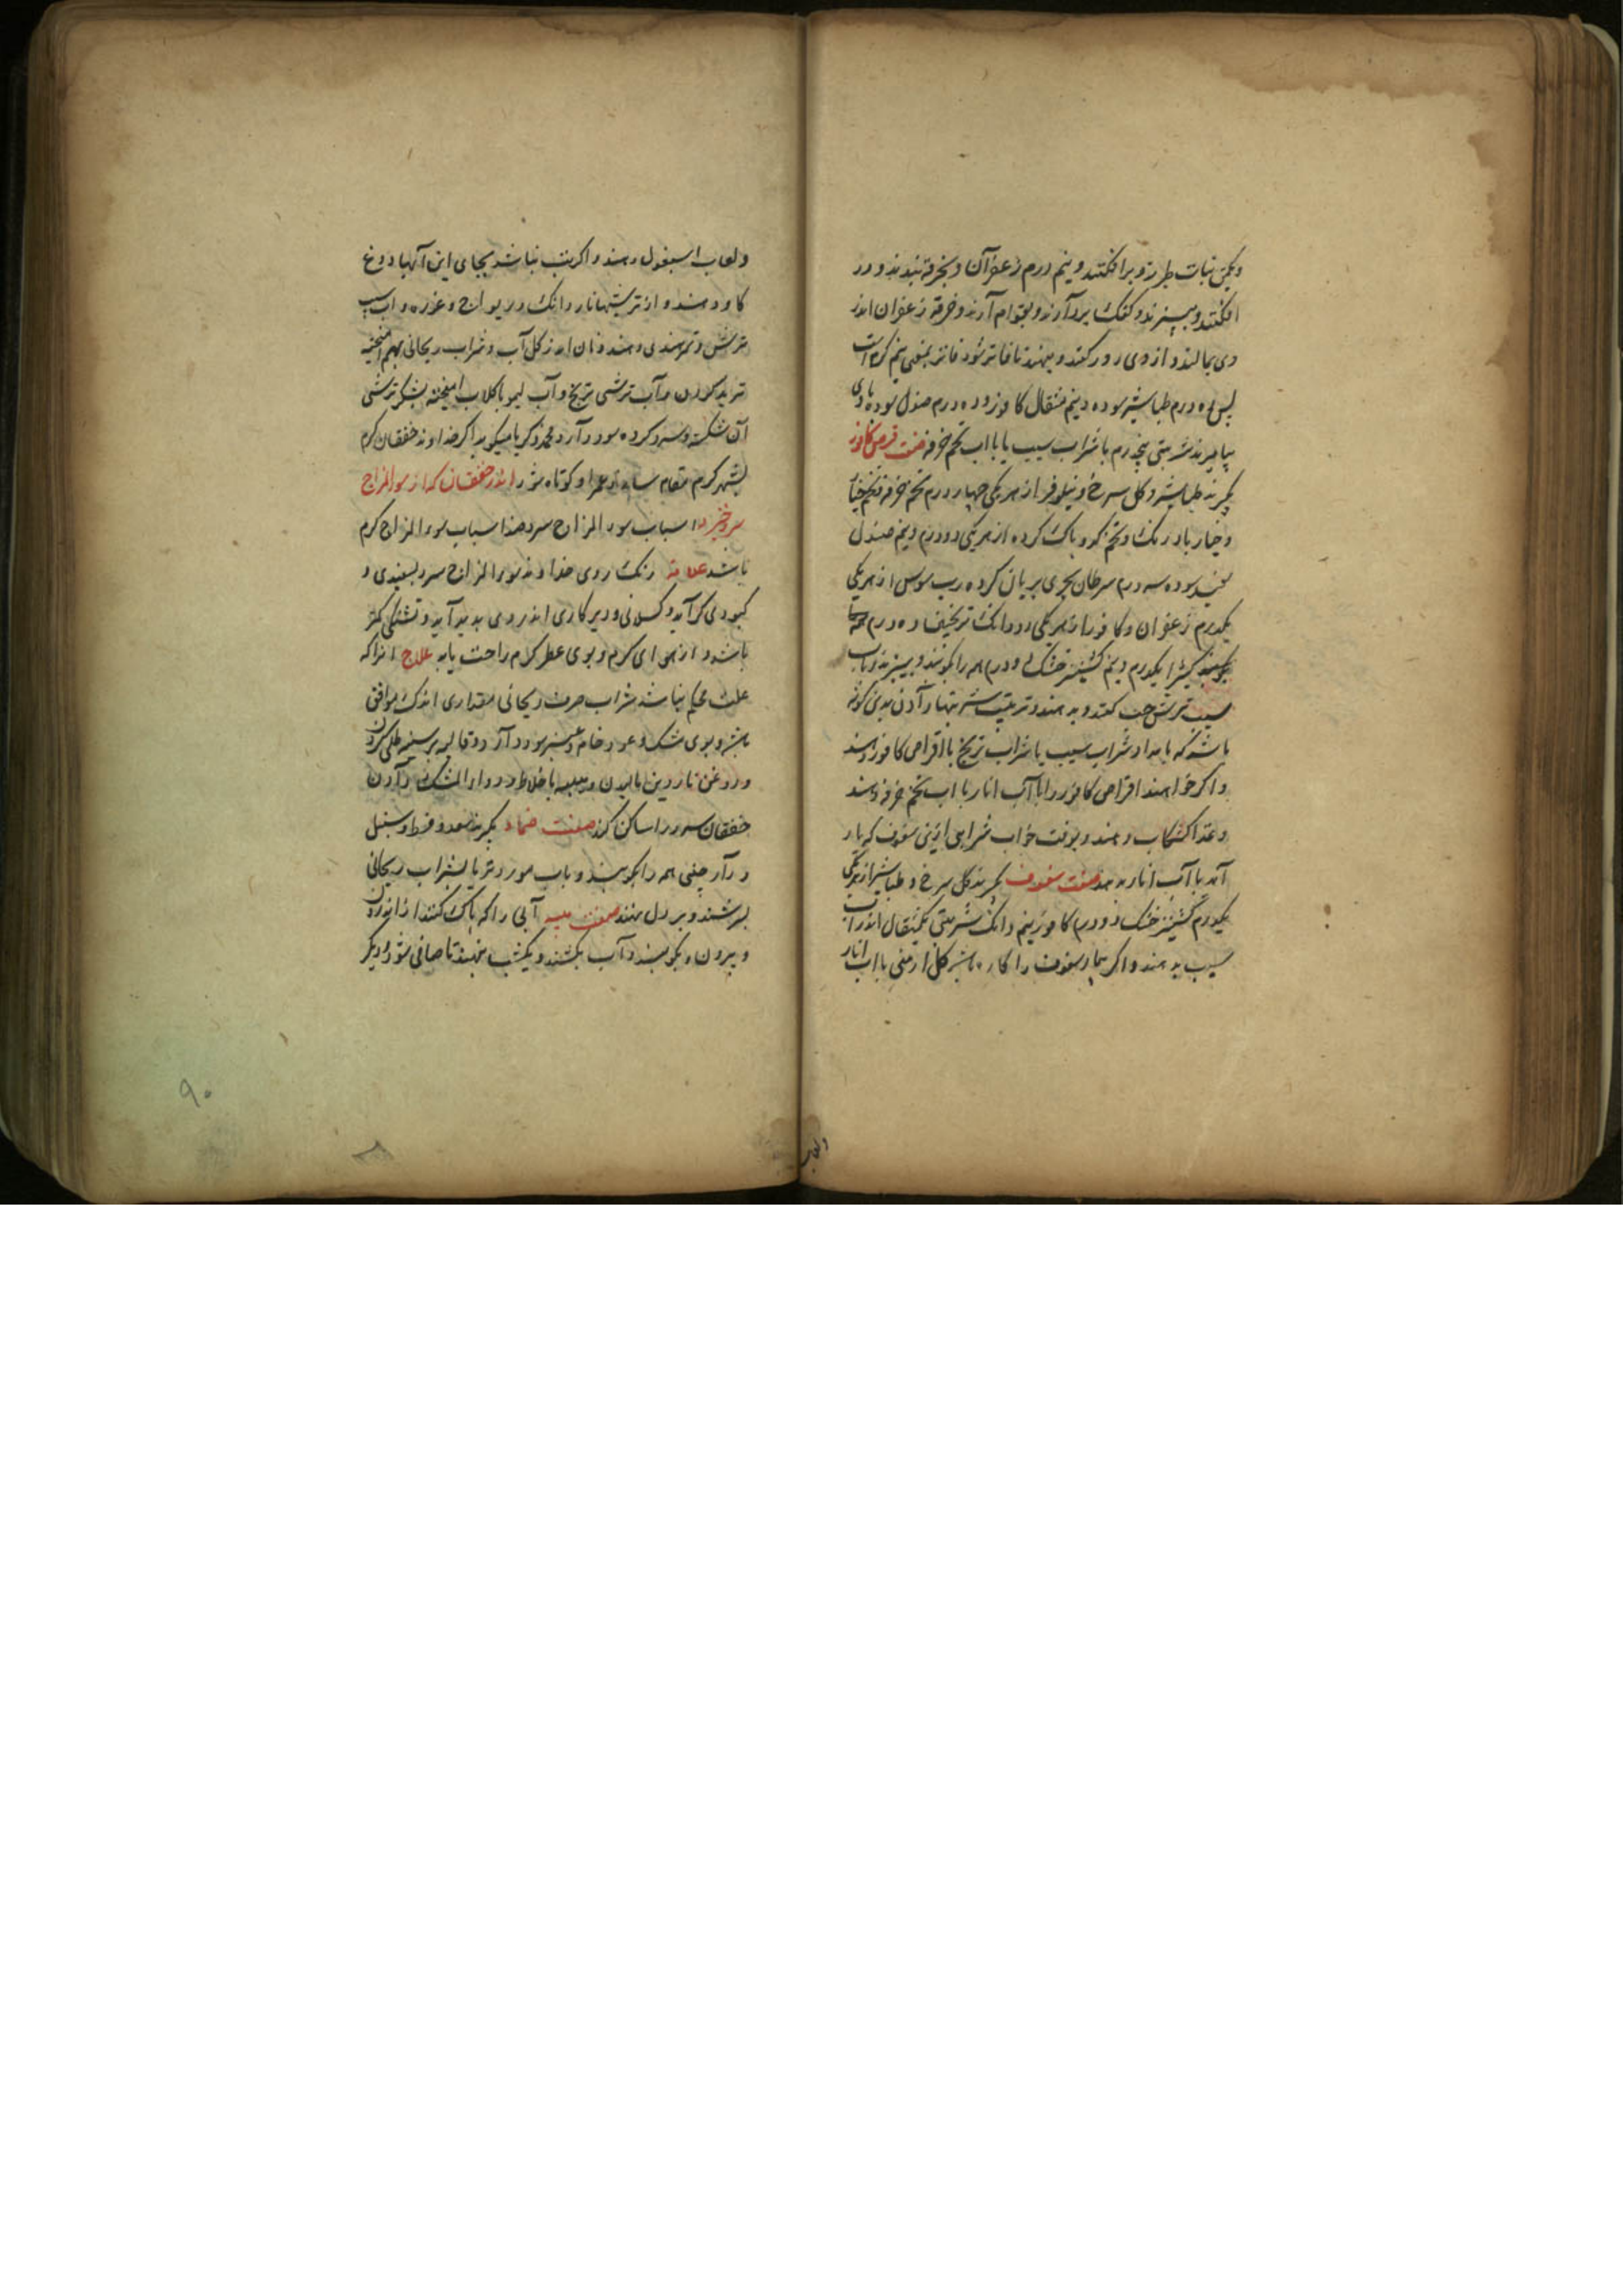 ویکمن نبات طبرزد برافکنند ونیم درم زعفران و بخرقه بندند و در
افکنند و بپزند و کفک بردارند و بقوام آرند و خرقه زعفران اندر
وی بمالند و از وی دور کنند و بنهند تا فاتر شود فاتر بمعنی نیم گرم است
پس ده درم طباشیر سوده ونیم مثقال کافور و ده درم صندل سوده با وی
بیامیزند شربتی پنجدرم با شراب سیب یا با اب تخم خرفه صفت قرص کافور
بگیرند طباشیر و کل سرخ و نیلوفر از هر یکی چهار درم تخم خرفه و تخم خیار
و خیار بادرنک و تخم کدو پاک کرده از هر یکی دو درم ونیم صندل
سفید سوده سه درم سرطان بحری بریان کرده رب سوس از هر یکی
یکدرم زعفران و کافور از هر یکی دو دانک ترنجبین ده درم همه
کتیرا یکدرم ونیم کشنیز خشک دو درم همه را بکوبند و ببیزند و باب
سیب ترش حب کنند و بدهند و ترتیب شربتها دادن بدین گونه
باشد که بامداد شراب سیب یا شراب ترنج با اقراص کافور دهند
و اکر خواهند اقراص کافور را با آب انار یا اب تخم خرفه دهند
و غذا کشکاب دهند و بوقت خواب شرابی از این سفوف که یاد
آمد با آب انار بدهند صفت سفوف بگیرند کل سرخ و طباشیر از هر یکی
یکدرم کشنیز خشک دو درم کافور نیم دانک شربتی یکمثقال اندر آب
سیب بدهند و اکر بیمار سفوف را کاره باشد کل ارمنی با اب انار
ولعاب
ولعاب اسبغول دهند و اکر تب نباشد بجای این آبها دوغ
کاو دهند و از ترشیها ناردانک و ریواج و غوره و اب سیب
ترش و تمرهندی دهند و نان اندر کل آب و شراب ریحانی بهم امیخته
ترید کردن و آب ترشی ترنج و آب لیمو با کلاب امیخته بشکر ترشی
آن شکسته و سرد کرده سود دارد و محمد زکریا میکوید اکر خداوند خفقان کرم
بشهر کرم مقام سازد عمر او کوتاه شود اندر خفقان که از سوء المزاج
سرد خیزد اسباب سوء المزاج سرد ضد اسباب سوء المزاج کرم
باشد علامت رنک روی خداوند سوء المزاج سرد بسفیدی و
کبودی کراید و کسلانی و دیر کاری اندر وی بدید آید و تشنکی کمتر
باشد و از هوای کرم و بوی عطر کرم راحت یابد علاج انرا که
علت محکم نباشد شراب صرف ریحانی مقداری اندک موافق
باشد و بوی مشک و عود خام و عنبر سود دارد و غالیه بر سینه طلی کردن
و روغن ناردین مالیدن و میبه با خلاط و دواء المشک دادن
خفقان سرد را ساکن کند صفت ضماد بگیرند سعد و قسط و سنبل
و دارچینی همه را بکوبند و باب مورد تر یا بشراب ریحانی
بسرشند و بر دل نهند صفت میبه آبی را که پاک کنند از اندرون
و بیرون و بکوبند و آب بکشند و یکشب بنهند تا صافی شود و دیکر
۹۰